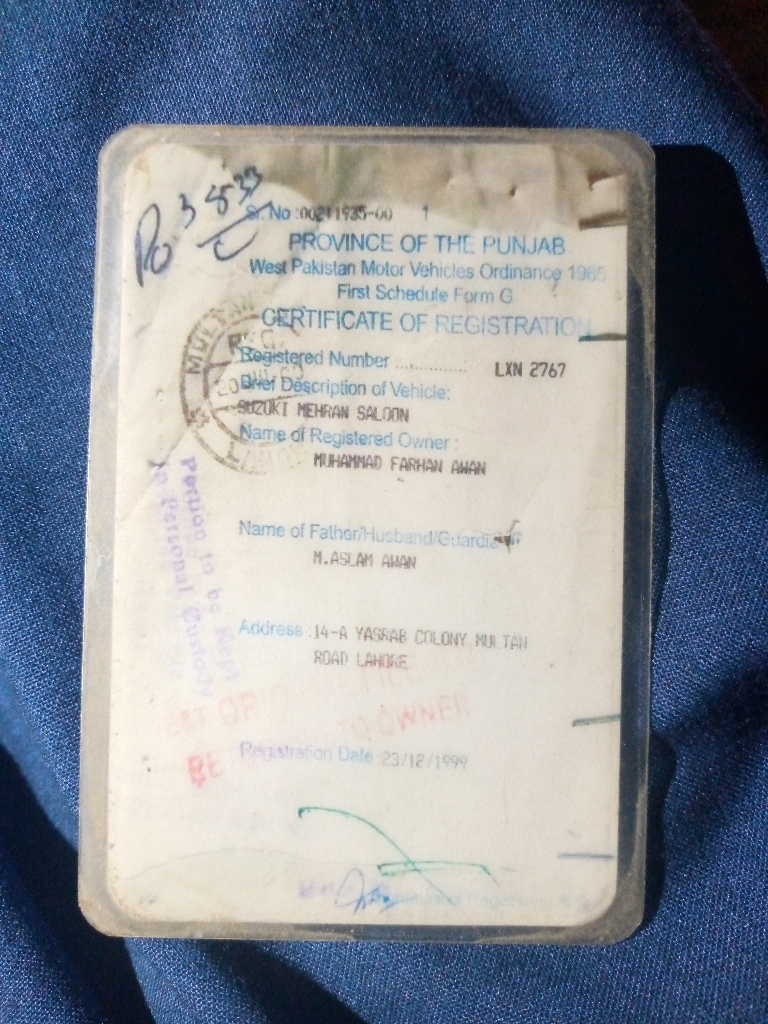 Po 3833
C
Sr. No :00211935-00 1
PROVINCE OF THE PUNJAB
West Pakistan Motor Vehicles Ordinance 1965
First Schedule Form G
CERTIFICATE OF REGISTRATION
Registered Number .............. LXN 2767
Brief Description of Vehicle:
SUZUKI MEHRAN SALOON
Name of Registered Owner :
MUHAMMAD FARHAN AWAN
Name of Father/Husband/Guardian
M.ASLAM AWAN
Address :14-A YASRAB COLONY MULTAN
ROAD LAHORE
TO OWNER
BE
Registration Date :23/12/1999
MULTAN
Portion to be Kept
in Personal Custody